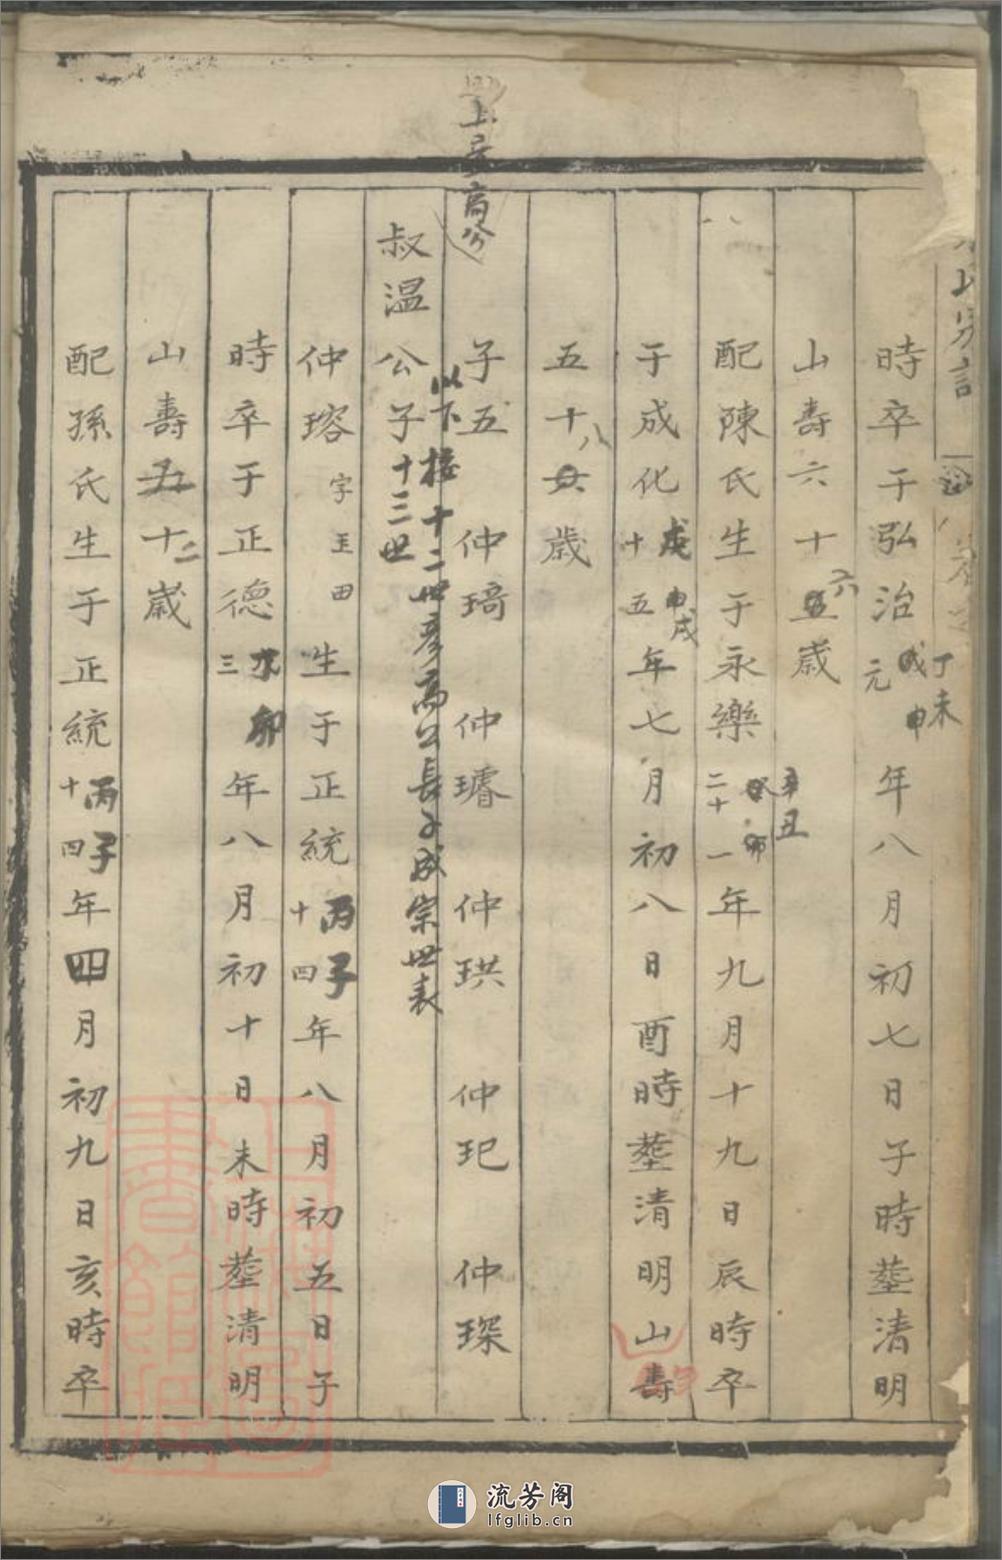 時卒于弘治元戊申丁未年八月初七日子時塟清明
山壽六十五六歲
配陳氏生于永樂二十一癸卯辛丑年九月十九日辰時卒
于成化十五戊戌年七月初八日酉時塟清明山壽
五十八歲
子五 仲琦 仲璿 仲珙 仲玘 仲琛
以下接十二世彦高公長子成宗世表
叔温公子十三世
仲瑢字玉田生于正統十四丙子年八月初五日子
時卒于正德三卯年八月初十日未時塟清明
山壽五十二歲
配孫氏生于正統十四丙子年四月初九日亥時卒
流芳阁
lfglib.cn